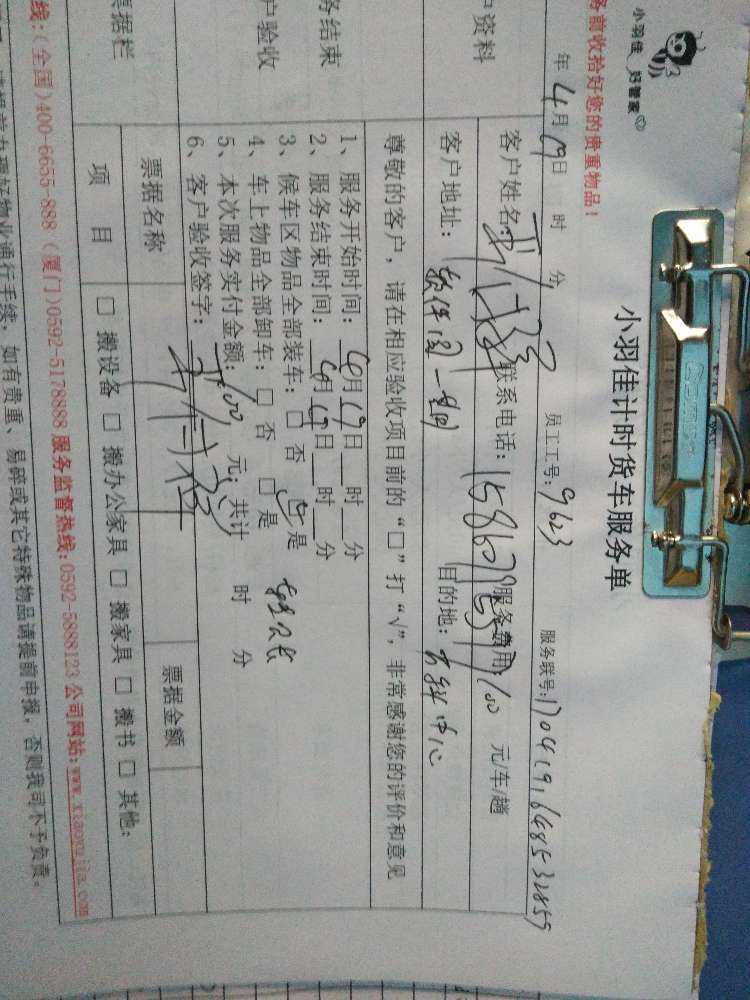 小羽佳 好管家
小羽佳计时货车服务单
务前收拾好您的贵重物品！
年 4月19日 时 分 员工工号：9623 服务联号：170419164853285
户资料 客户姓名： 联系电话： 服务费用：100 元/车/趟
客户地址：软件园一期 目的地： 中心
尊敬的客户，请在相应验收项目前的“□”打“√”，非常感谢您的评价和意见
务结束
户验收
1、服务开始时间：4月19日 时 分
2、服务结束时间：4月19日 时 分
3、候车区物品全部装车：□ 否 是
4、车上物品全部卸车：□ 否 □ 是
5、本次服务实付金额： 元；共计 时 分
6、客户验收签字：
票据栏 票据名称 票据金额
项 目 □ 搬设备 □ 搬办公家具 □ 搬家具 □ 搬书 □ 其他：
线：(全国)400-6655-888 (厦门)0592-5178888 服务监督热线：0592-5888123 公司网站：www.xiaoyujia.com
请提前办理好物业通行手续，如有贵重、易碎或其它特殊物品请提前申报，否则我司不予负责。